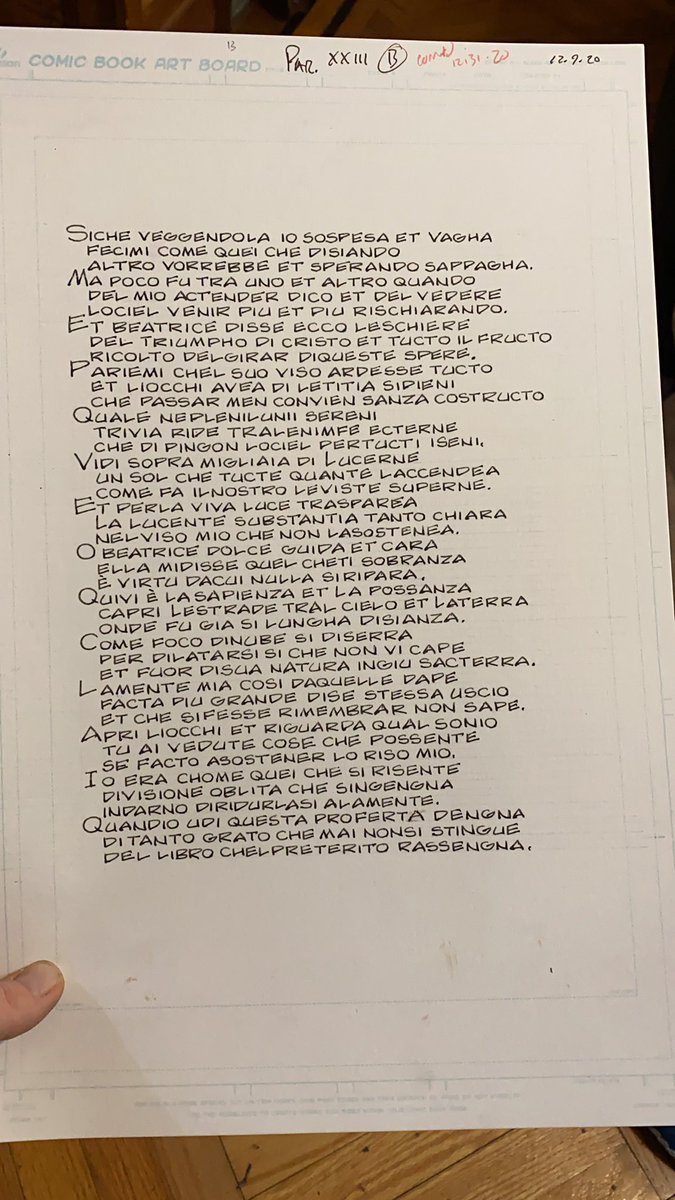 13
COMIC BOOK ART BOARD PAR. XXIII B 12.31.20 12.9.20
SICHE VEGGENDOLA IO SOSPESA ET VAGHA
FECIMI COME QUEI CHE DISIANDO
ALTRO VORREBBE ET SPERANDO SAPPAGHA.
MA POCO FU TRA UNO ET ALTRO QUANDO
DEL MIO ACTENDER DICO ET DEL VEDERE
LOCIEL VENIR PIU ET PIU RISCHIARANDO.
ET BEATRICE DISSE ECCO LESCHIERE
DEL TRIUMPHO DI CRISTO ET TUCTO IL FRUCTO
RICOLTO DELGIRAR DIQUESTE SPERE.
PARIEMI CHEL SUO VISO ARDESSE TUCTO
ET LIOCCHI AVEA DI LETITIA SIPIENI
CHE PASSAR MEN CONVIEN SANZA COSTRUCTO
QUALE NEPLENILUNII SERENI
TRIVIA RIDE TRALENIMFE ECTERNE
CHE DI PINGON LOCIEL PERTUCTI ISENI.
VIDI SOPRA MIGLIAIA DI LUCERNE
UN SOL CHE TUCTE QUANTE LACCENDEA
COME FA ILNOSTRO LEVISTE SUPERNE.
ET PERLA VIVA LUCE TRASPAREA
LA LUCENTE SUBSTANTIA TANTO CHIARA
NELVISO MIO CHE NON LASOSTENEA.
O BEATRICE DOLCE GUIDA ET CARA
ELLA MIDISSE QUEL CHETI SOBRANZA
È VIRTU DACUI NULLA SIRIPARA.
QUIVI È LASAPIENZA ET LA POSSANZA
CAPRI LESTRADE TRAL CIELO ET LATERRA
ONDE FU GIA SI LUNGHA DISIANZA.
COME FOCO DINUBE SI DISERRA
PER DILATARSI SI CHE NON VI CAPE
ET FUOR DISUA NATURA INGIU SACTERRA.
LAMENTE MIA COSI DAQUELLE DAPE
FACTA PIU GRANDE DISE STESSA USCIO
ET CHE SIFESSE RIMEMBRAR NON SAPE.
APRI LIOCCHI ET RIGUARDA QUAL SONIO
TU AI VEDUTE COSE CHE POSSENTE
SE FACTO ASOSTENER LO RISO MIO.
IO ERA CHOME QUEI CHE SI RISENTE
DIVISIONE OBLITA CHE SINGENGNA
INDARNO DIRIDURLASI ALAMENTE.
QUANDIO UDI QUESTA PROFERTA DENGNA
DI TANTO GRATO CHE MAI NONSI STINGUE
DEL LIBRO CHELPRETERITO RASSENGNA.